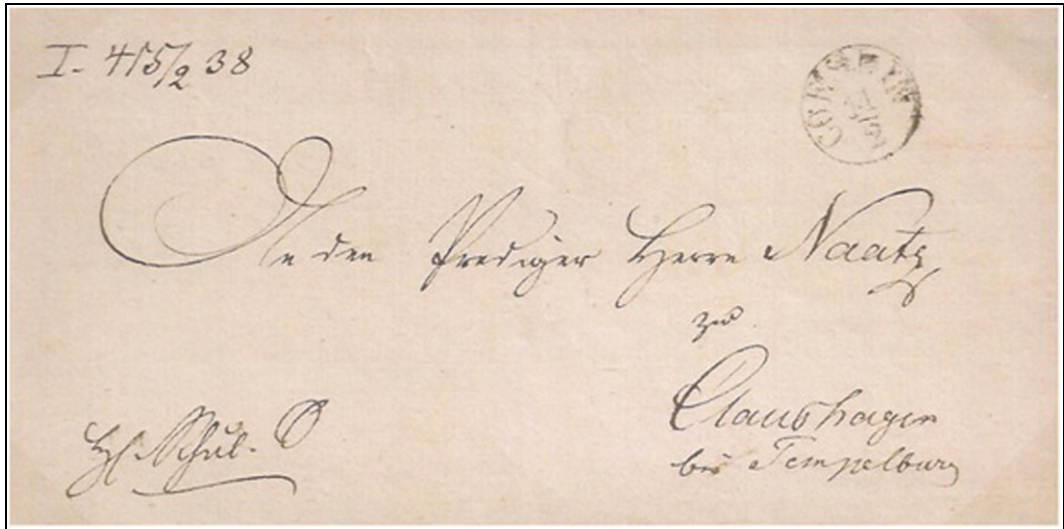 I. 415/2 38
COESLIN
An den Prediger Herrn Naatz
zu
Claushagen
bei Tempelburg
Schul. S